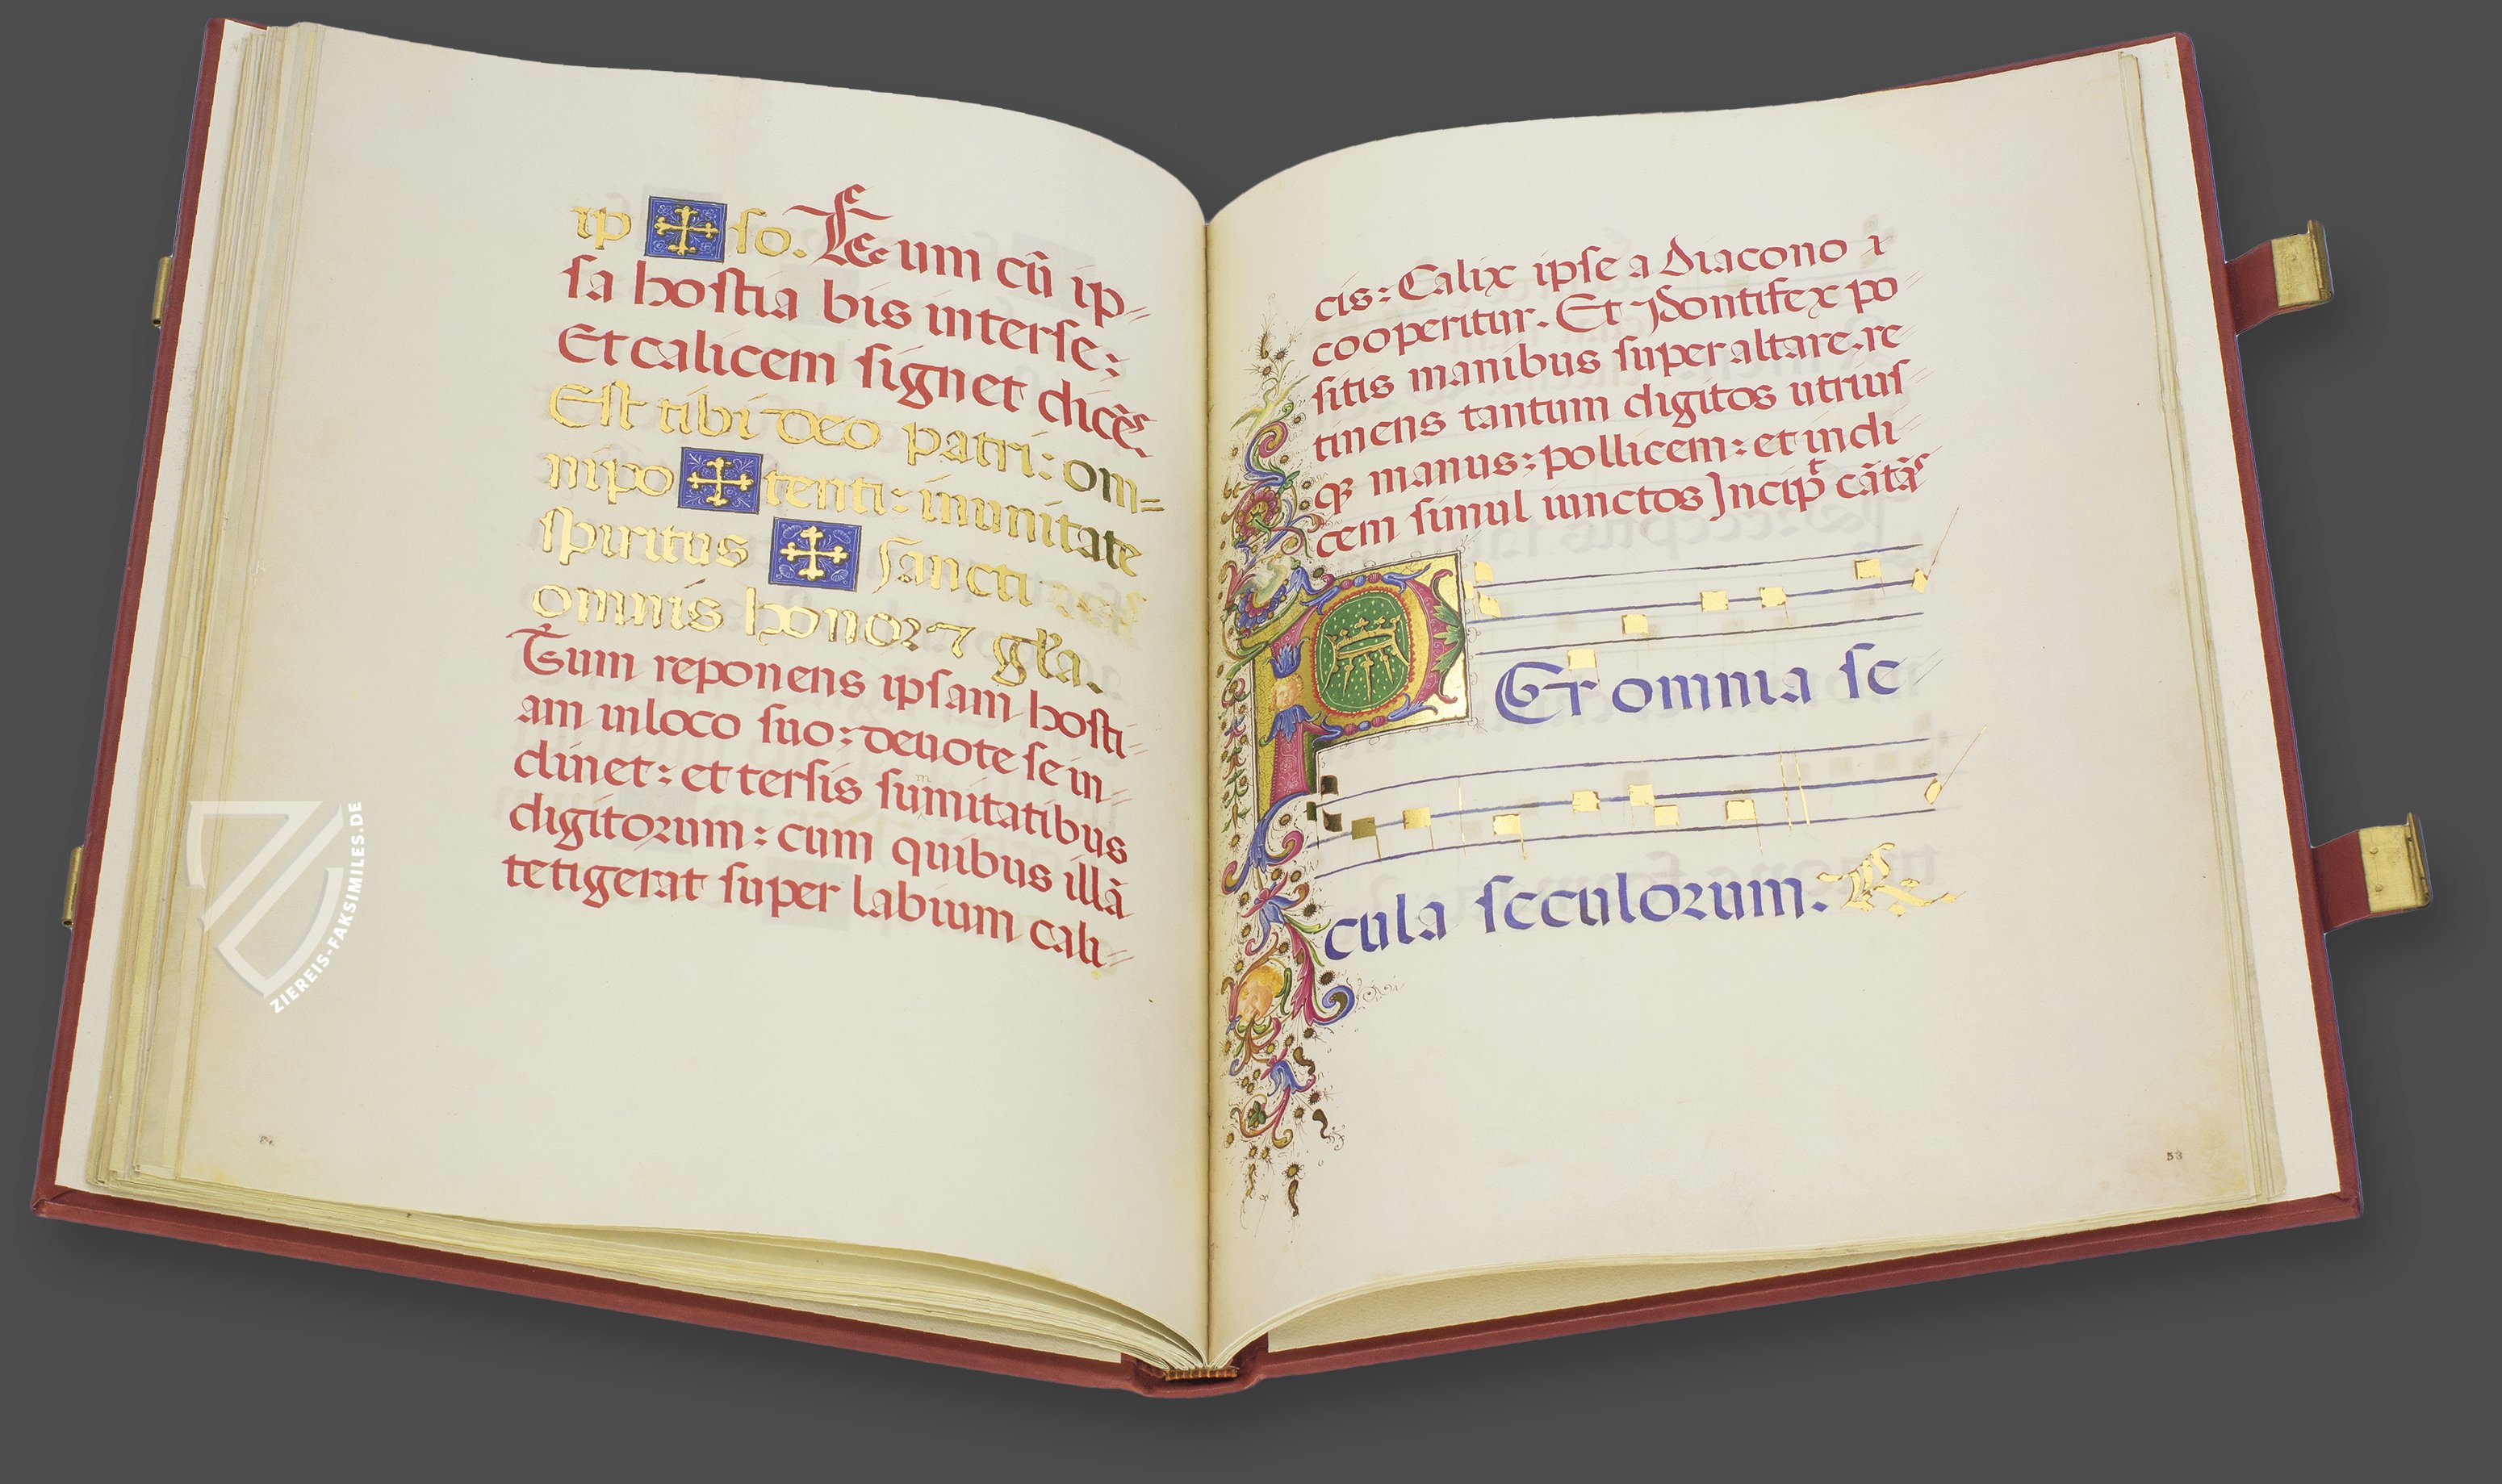 ip ✠ so. Tum cū ip-
sa hostia bis inter se:
Et calicem signet dicēs
Est tibi deo patri: om=
nipo ✠ tenti: in unitate
spiritus ✠ sancti
omnis honor ⁊ gl̄a.
Tum reponens ipsam hosti-
am in loco suo: devote se in-
clinet: et tersis summitatibus
digitorum: cum quibus illā
tetigerat super labium cali-
cis: Calix ipse a Diacono
cooperitur. Et Pontifex po
sitis manibus super altare: re
tinens tantum digitos utrius
qꝫ manus: pollicem: et indi
cem simul iunctos Incip̄t cātās
PEr omnia se
cula seculorum: ℟.
53
ZIEREIS-FAKSIMILES.DE